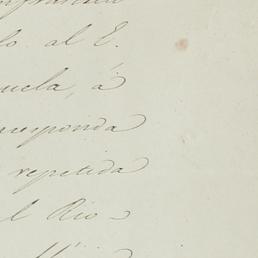 lo al E.
uela, á
rresponda
repetida
el Rio